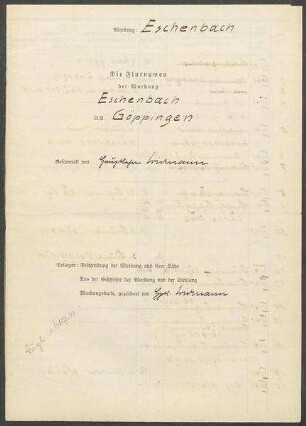 Markung: Eschenbach
Die Flurnamen
der Markung
Eschenbach
O.A. Göppingen
Gesammelt von Hauptlehrer
Beilagen: Beschreibung der Markung und ihrer Lage
Aus der Geschichte der Markung und der Siedlung
Markungskarte, gezeichnet von Hptl.